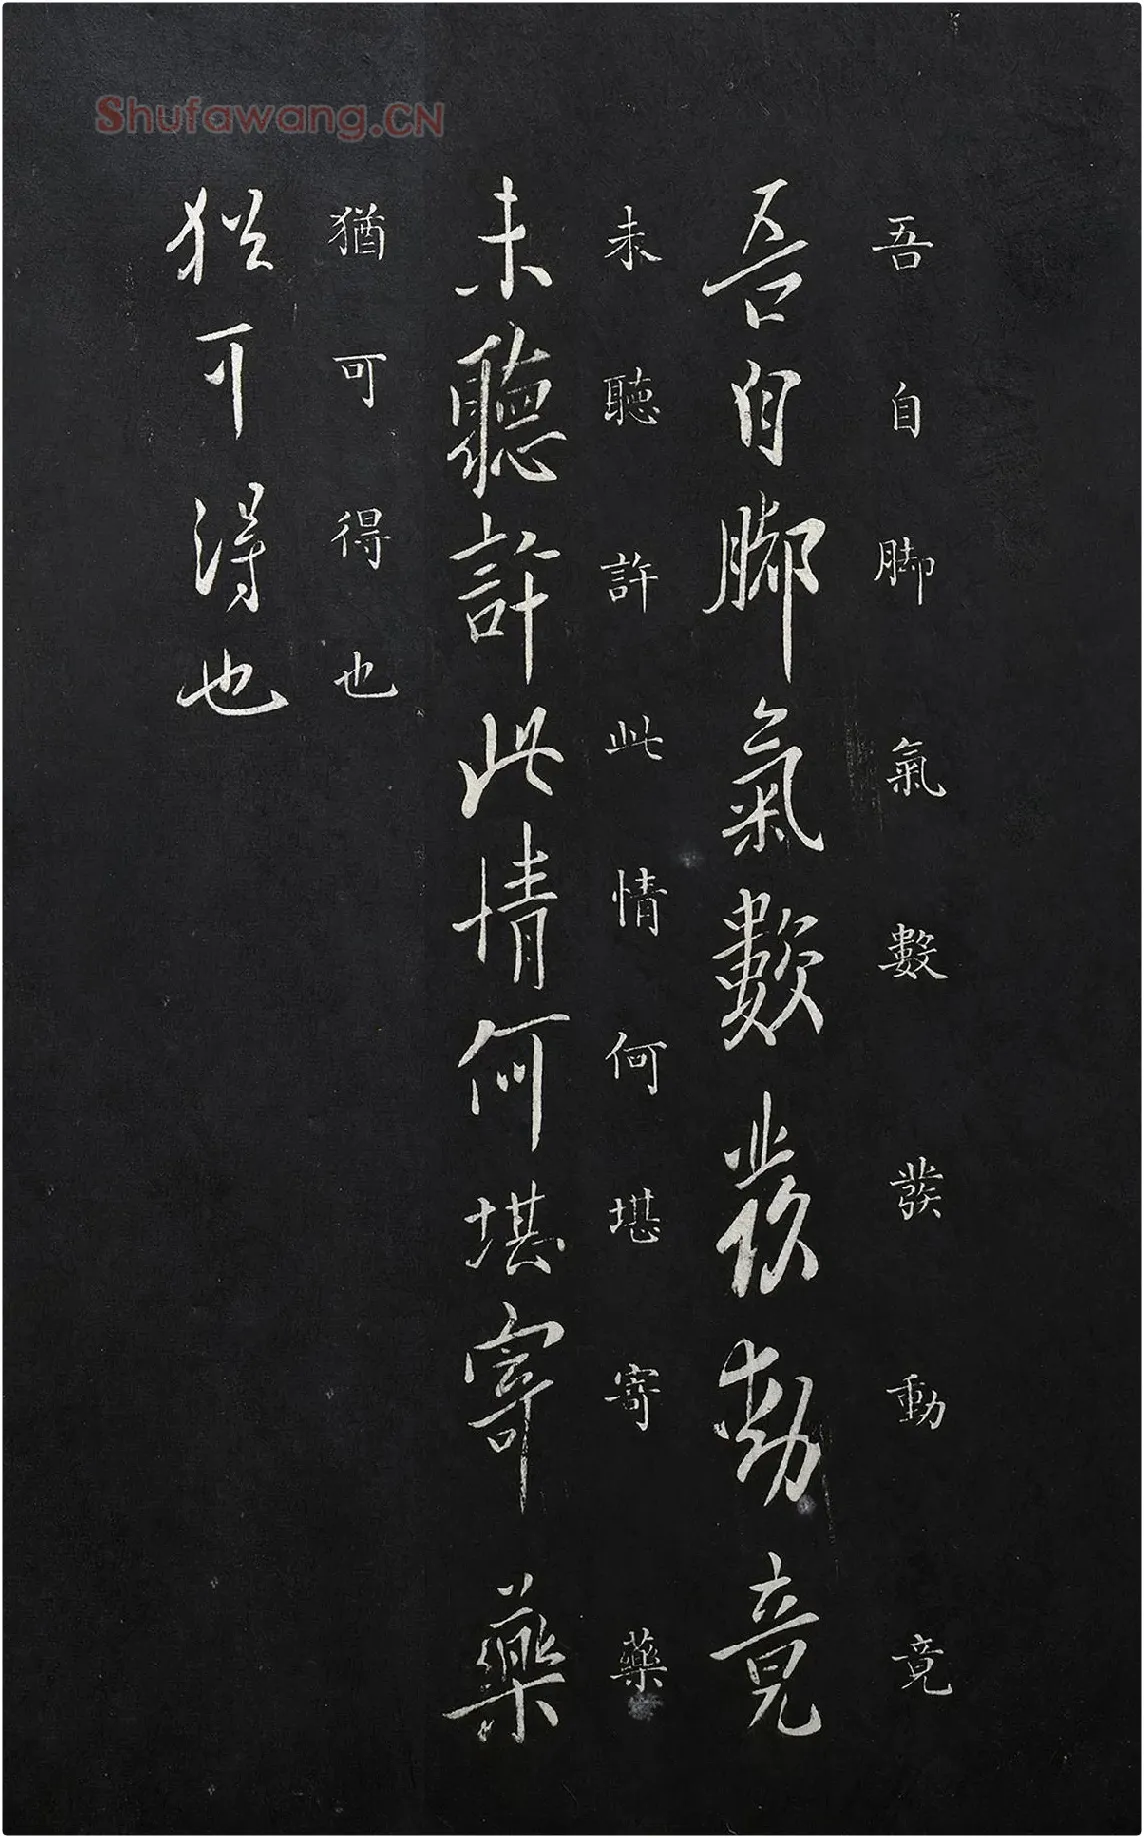 Shufawang.CN
吾自脚氣數發動竟
吾自脚氣數發動竟
未聽許此情何堪寄藥
未聽許此情何堪寄藥
猶可得也
猶可得也